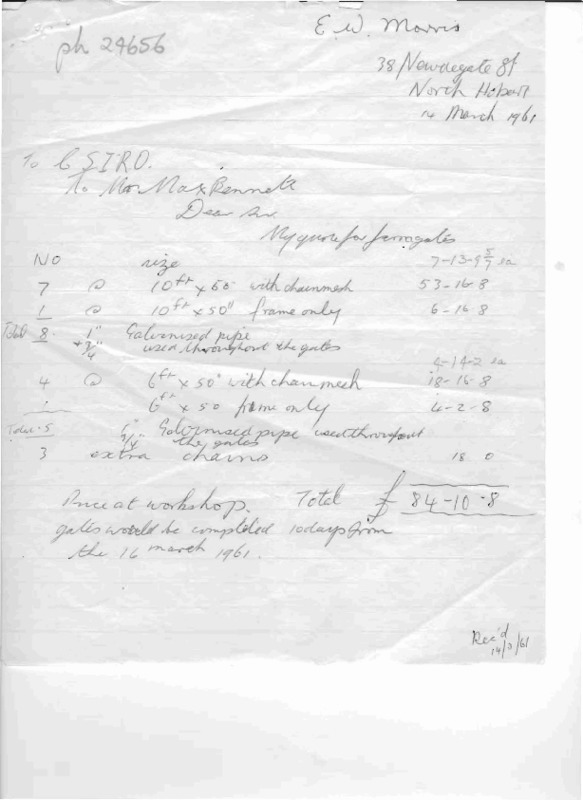 E. W. Morris
ph 24656
38 Newdegate St
North Hobart
14 March 1961
To CSIRO.
To Mr. Max Bennett
Dear Sir.
My quote for farm gates
NO size 7-13-9 5/7 ea
7 @ 10ft x 50" with chainmesh 53-16-8
1 @ 10ft x 50" frame only 6-16-8
Total 8. 1" Galvanised pipe
+ 3/4" used throughout the gates
4-14-2 ea
4 @ 6ft x 50" with chainmesh 18-16-8
6ft x 50 frame only 4-2-8
Total. 5 Galvanised pipe used throughout
3/4" the gates
3 extra chains 18 0
Price at workshop. Total £ 84-10-8
gates would be completed 10 days from
the 16 march 1961.
Rec'd
14/3/61